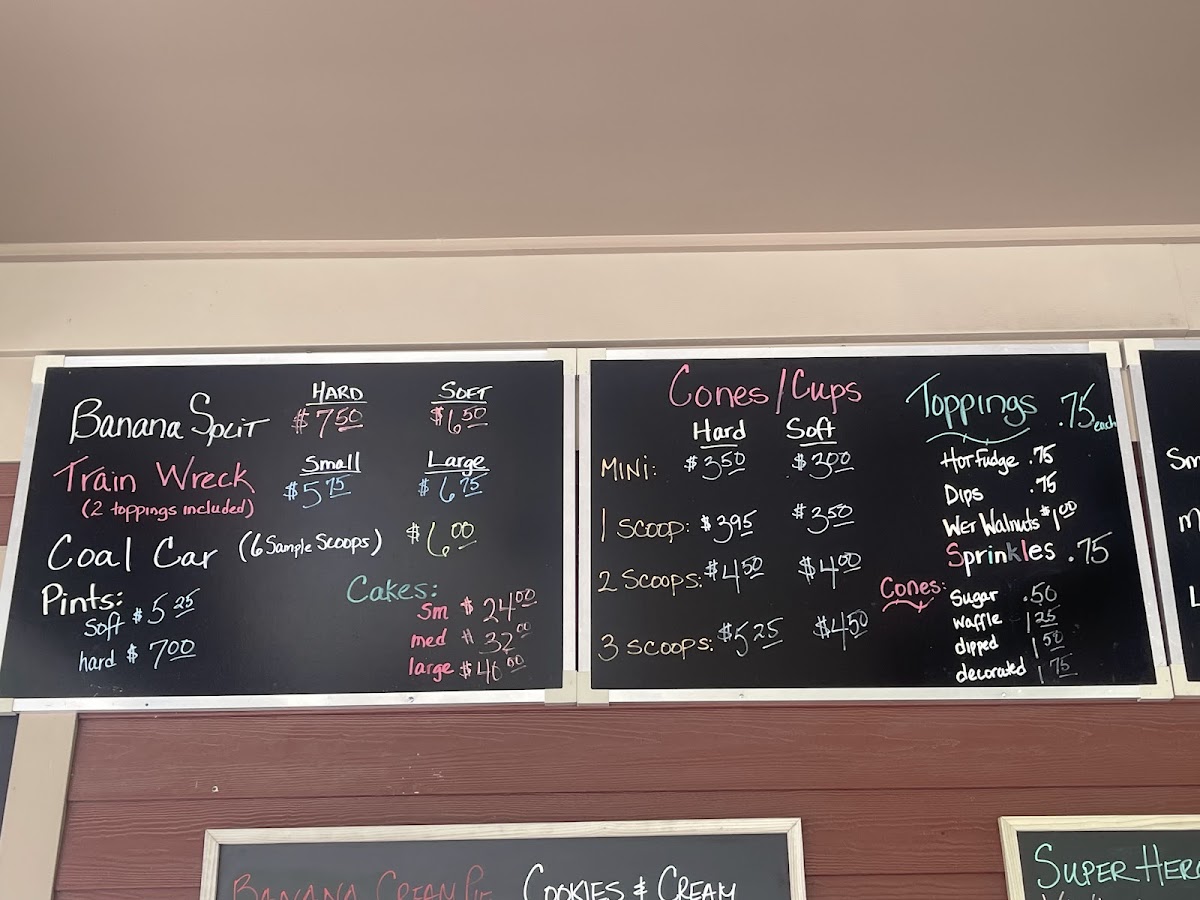 HARD SOFT
Banana Split $7.50 $6.50
Small Large
Train Wreck $5.75 $6.75
(2 toppings included)
Coal Car (6 Sample Scoops) $6.00
Pints:
Soft $5.25
hard $7.00
Cakes:
Sm $24.00
med $32.00
large $40.00
Cones/Cups
Hard Soft
MINI: $3.50 $3.00
1 SCOOP: $3.95 $3.50
2 SCOOPS: $4.50 $4.00
3 SCOOPS: $5.25 $4.50
Toppings .75 each
Hot Fudge .75
Dips .75
Wet Walnuts $1.00
Sprinkles .75
Cones:
Sugar .50
waffle 1.25
dipped 1.50
decorated 1.75
Sm
BANANA CREAM PIE COOKIES & CREAM